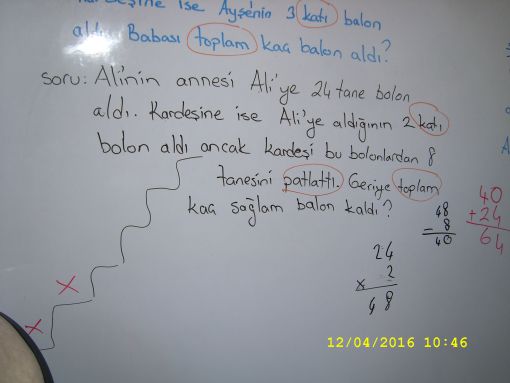 ise Ayşenin 3 katı balon
aldı. Babası toplam kaç balon aldı?
soru: Ali'nin annesi Ali'ye 24 tane bolon
aldı. Kardeşine ise Ali'ye aldığının 2 katı
bolon aldı ancak kardeşi bu bolonlardan 8
tanesini patlattı. Geriye toplam
kaç sağlam balon kaldı?
48
- 8
40
40
+ 24
64
24
x 2
48
x
x
12/04/2016 10:46